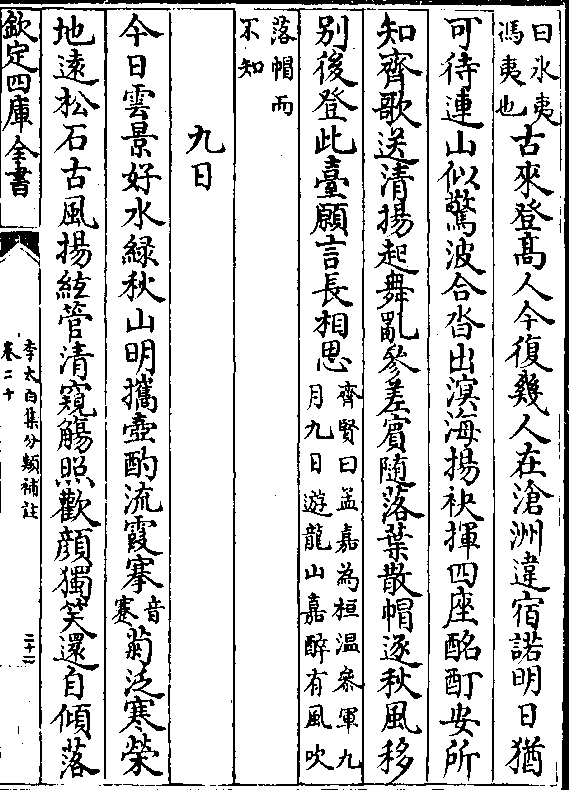 曰氷夷
馮夷也
古來登髙人今復幾人在滄洲違宿諾明日猶
可待連山似驚波合沓出溟海揚袂揮四座酩酊安所
知齊歌送清揚起舞亂參差賓隨落葉散帽逐秋風移
别後登此臺願言長相思
齊賢曰孟嘉為桓温叅軍九
月九日遊龍山嘉醉有風吹
落帽而
不知
九日
今日雲景好水緑秋山明攜壺酌流霞搴
音
蹇
菊泛寒榮
地逺松石古風揚絃管清窺觴照歡顔獨笑還自傾落
欽定四庫全書
李太白集分類補註
卷二十
二十二